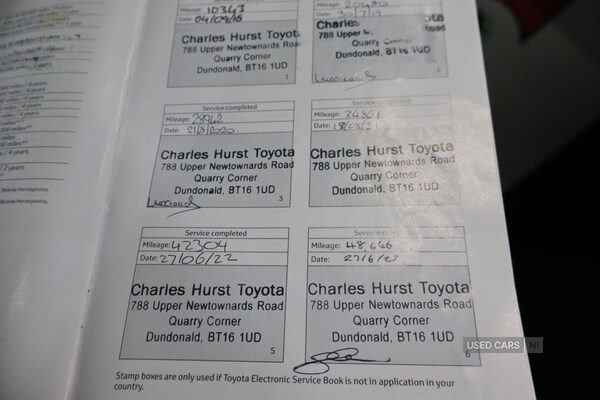 Mileage: 10343
Date: 04/09/18
Charles Hurst Toyota
788 Upper Newtownards Road
Quarry Corner
Dundonald, BT16 1UD
1
Mileage: 20400
Charles
Quarry Corner
Dundonald, BT16 1UD
2
Service completed
Mileage: 28942
Date: 21/8/2020
Charles Hurst Toyota
788 Upper Newtownards Road
Quarry Corner
Dundonald, BT16 1UD
3
Service completed
Mileage: 34861
Date:
Charles Hurst Toyota
788 Upper Newtownards Road
Quarry Corner
Dundonald, BT16 1UD
Service completed
Mileage: 42304
Date: 27/06/22
Charles Hurst Toyota
788 Upper Newtownards Road
Quarry Corner
Dundonald, BT16 1UD
5
Service completed
Mileage: 48,646
Date: 27/6/23
Charles Hurst Toyota
788 Upper Newtownards Road
Quarry Corner
Dundonald, BT16 1UD
6
Stamp boxes are only used if Toyota Electronic Service Book is not in application in your
country.
USED CARS NI